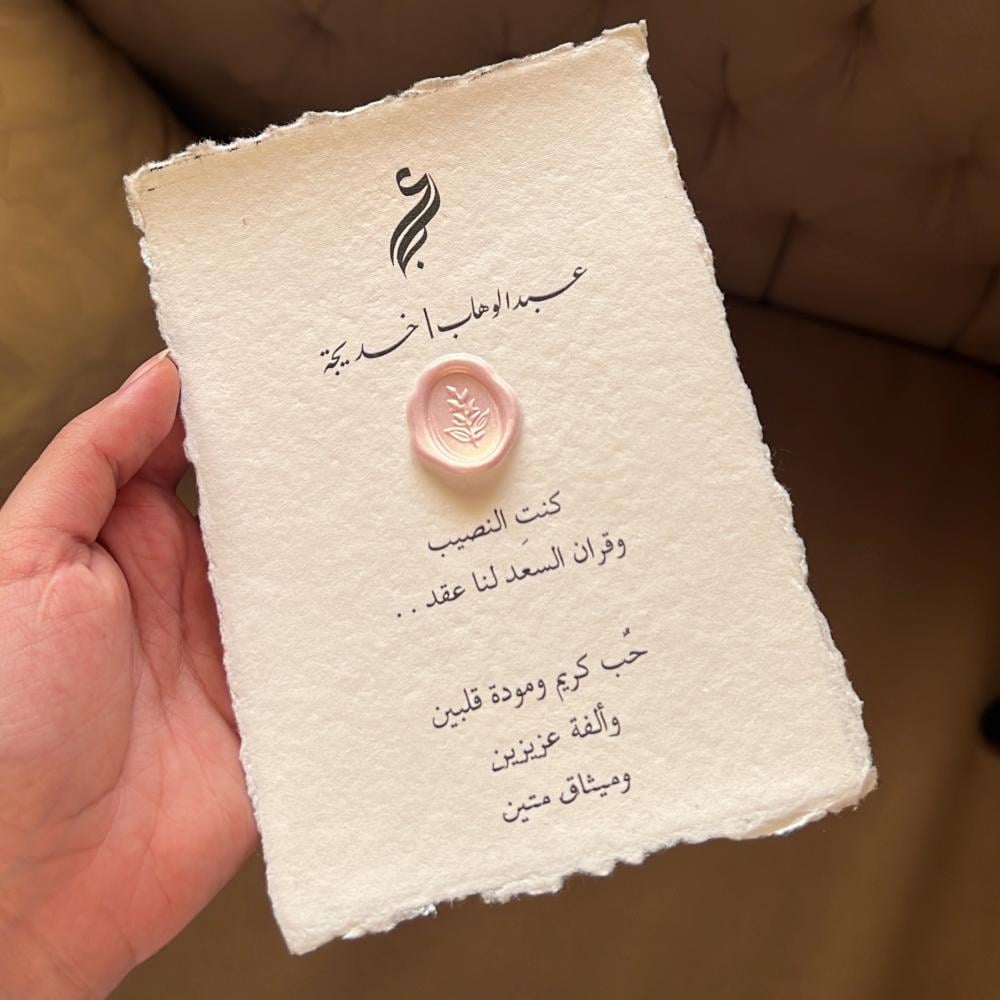 عبدالوهاب | خديجة
كنتِ النصيب
وقران السعَد لنا عقد ..
حُب كريم ومودة قلبين
وألفة عزيزين
وميثاق متين